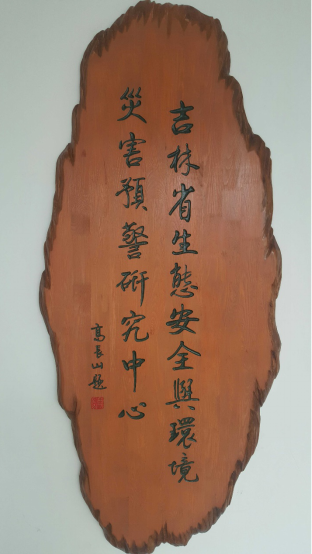 吉林省生態安全與環境
災害預警研究中心
高長山題